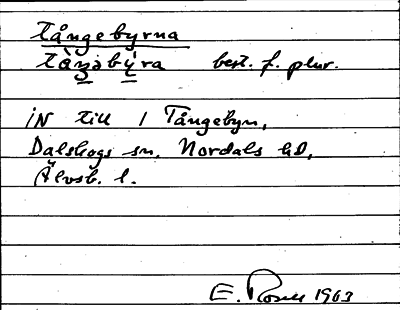 Tångebyrna
tàŋəbý̱ra best. f. plur.
iN till 1 Tångebyn,
Dalskogs sn, Nordals hd,
Älvsb. l.
E. Rosell 1963